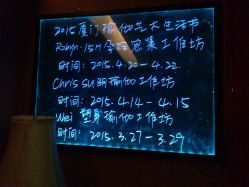 2015厦门瑜伽艺术生活节
Robyn.15H
工作坊
时间: 2015.4.20-4.22.
Chris su 瑜伽工作坊
时间: 2015.4.14-4.15
Wei 塑身瑜伽工作坊
时间: 2015.3.27-3.29